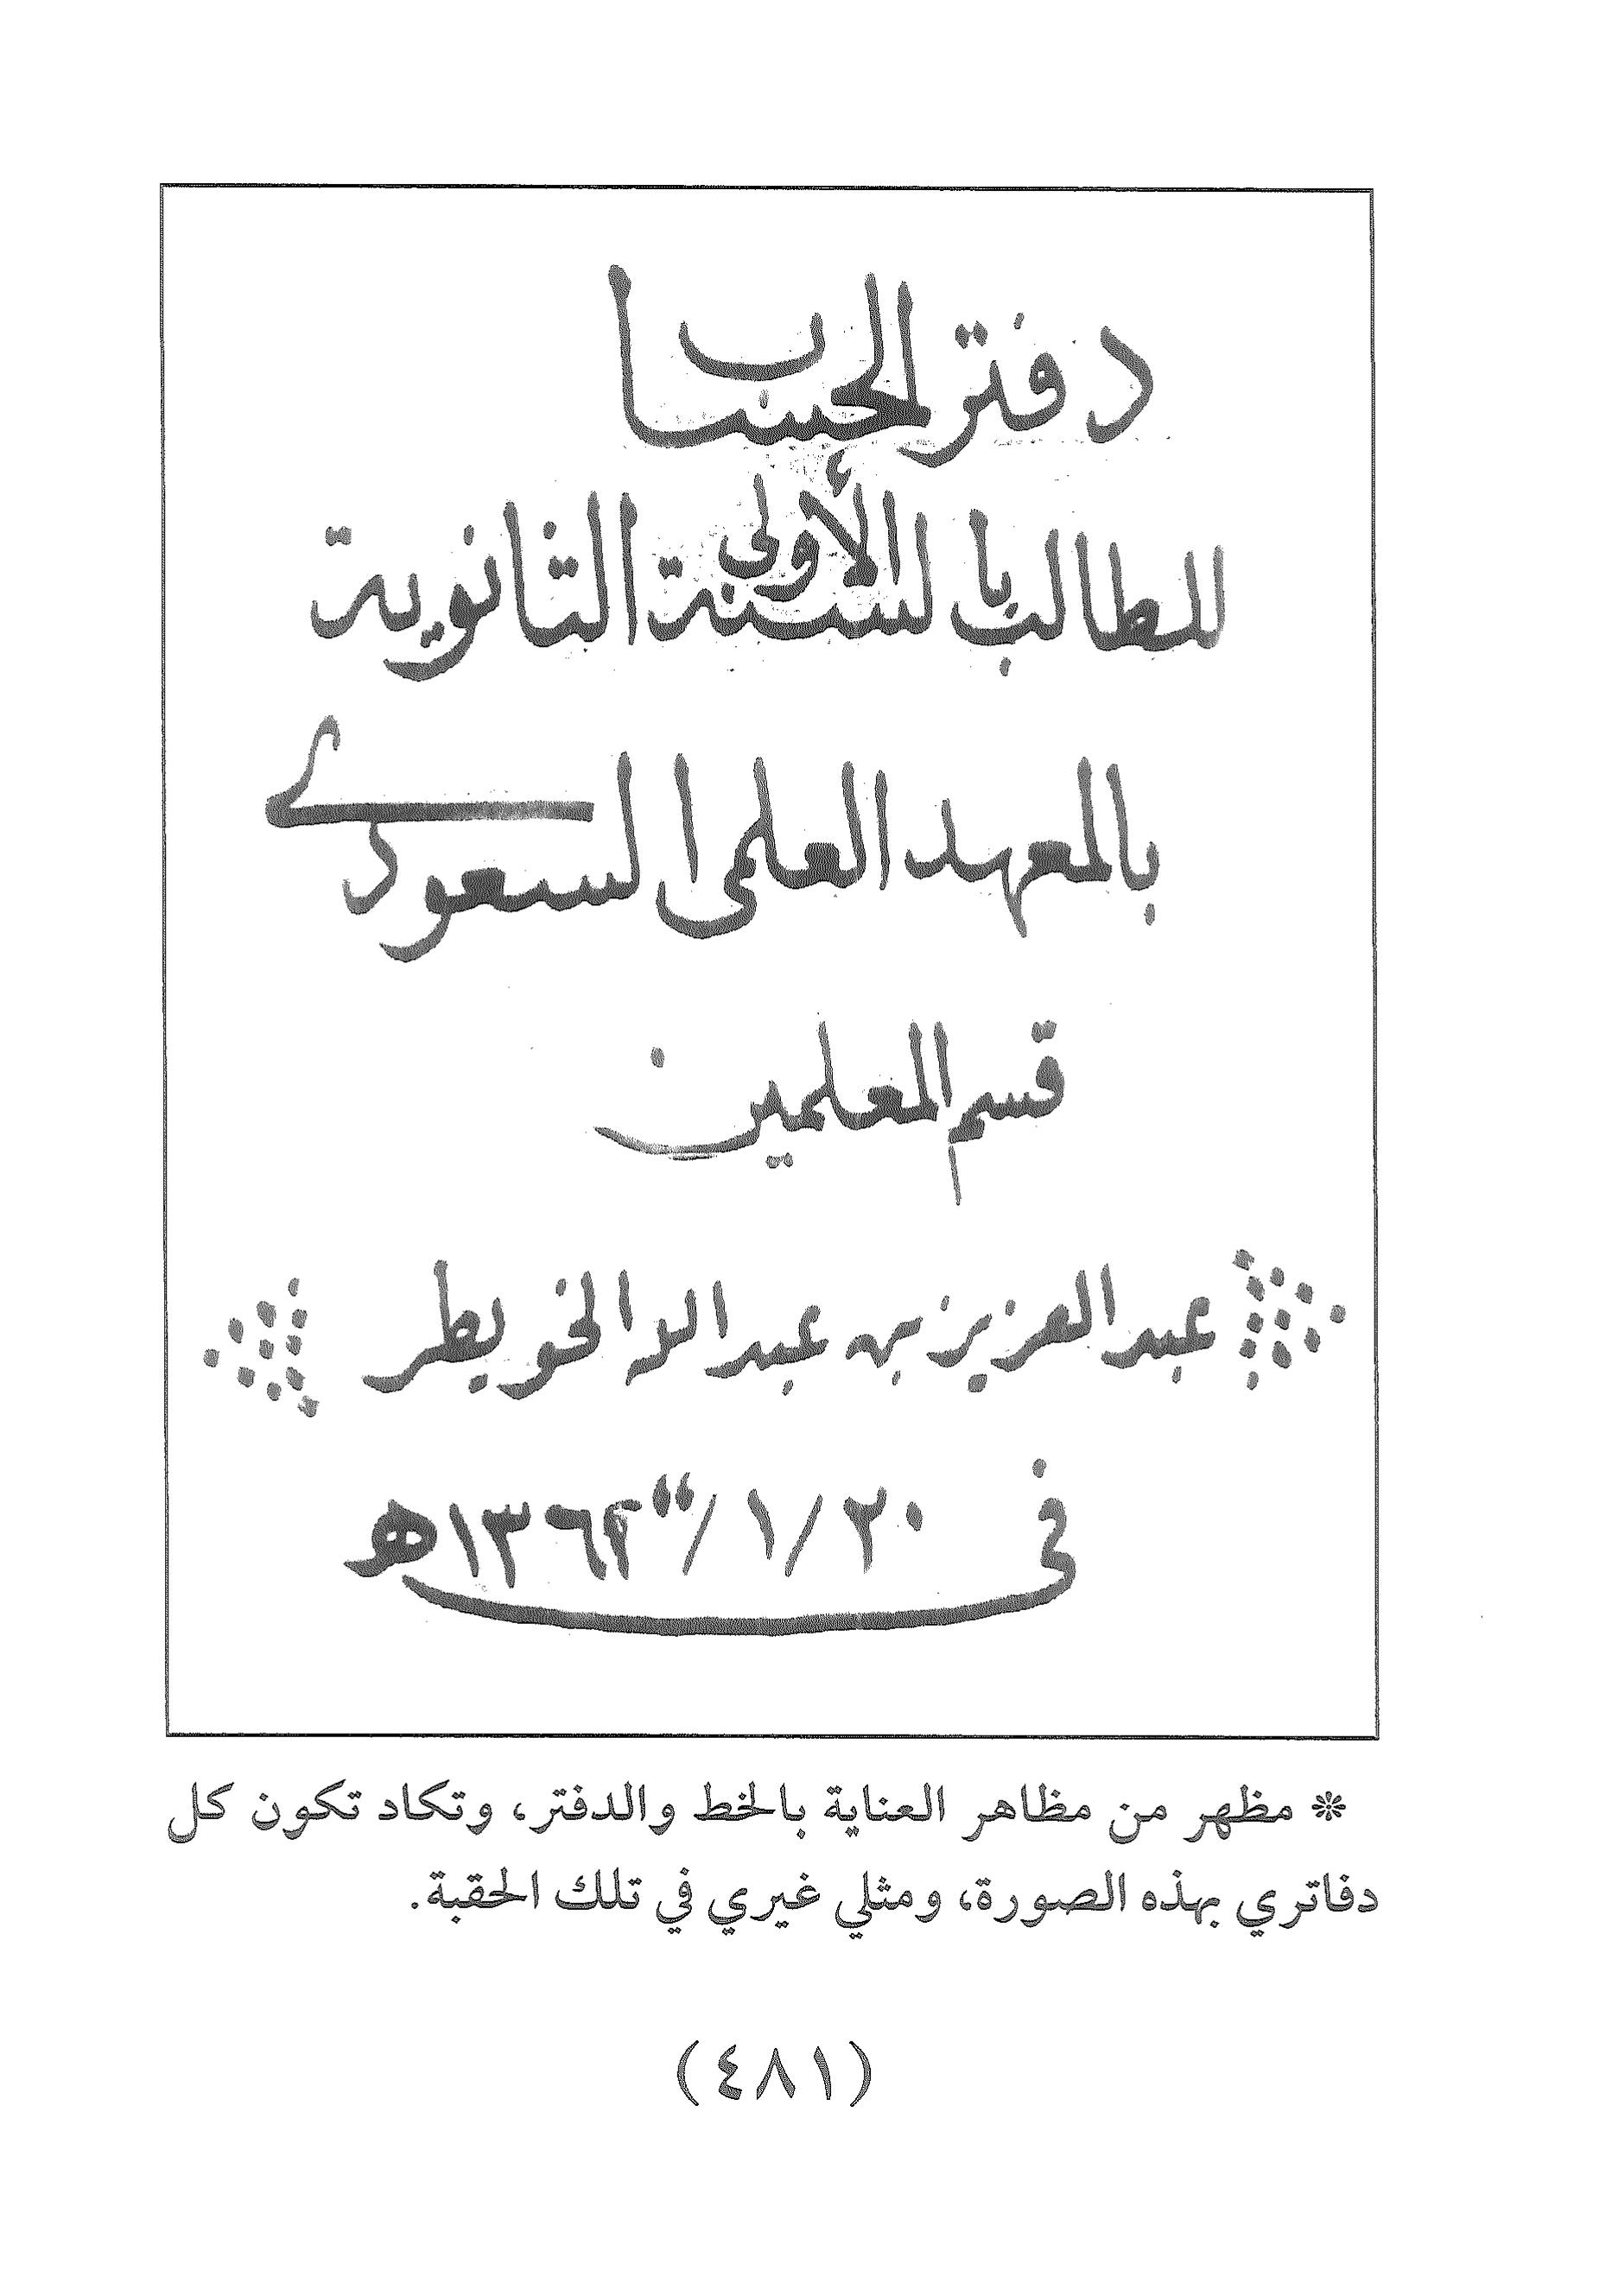 دفتر الحساب
للطالب بالسنة الأولى الثانوية
بالمعهد العلمى السعودى
قسم المعلمين
عبد العزيز بن عبد الله الخويطر
فى ٢٠ / ١ / ١٣٦٢ه
❊ مظهر من مظاهر العناية بالخط والدفتر، وتكاد تكون كل
دفاتري بهذه الصورة، ومثلي غيري في تلك الحقبة.
(٤٨١)